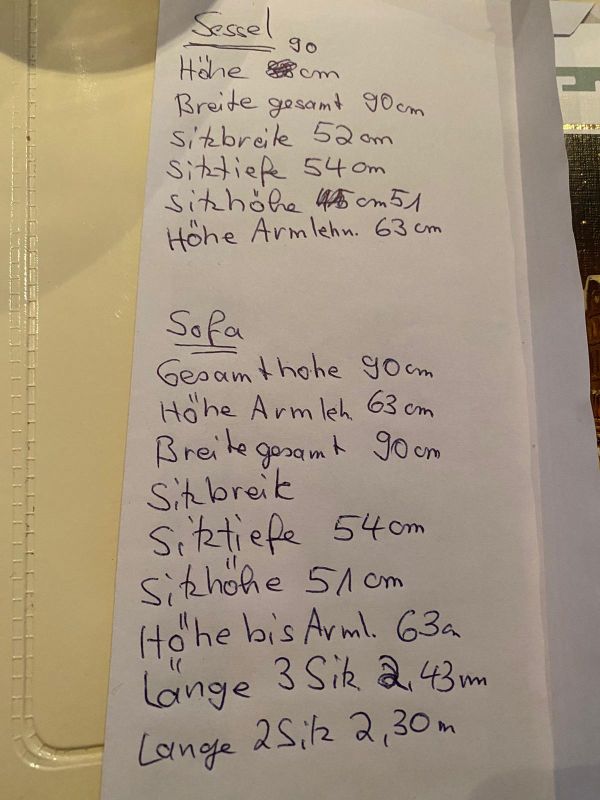 Sessel
Höhe 90 cm
Breite gesamt 90 cm
Sitzbreite 52 cm
Sitztiefe 54 cm
Sitzhöhe cm 51
Höhe Armlehn. 63 cm
Sofa
Gesamthohe 90 cm
Höhe Armleh. 63 cm
Breite gesamt 90 cm
Sitzbreit
Sitztiefe 54 cm
Sitzhöhe 51 cm
Höhe bis Arml. 63
Länge 3 Sitz 2,43 m
Lange 2 Sitz 2,30 m